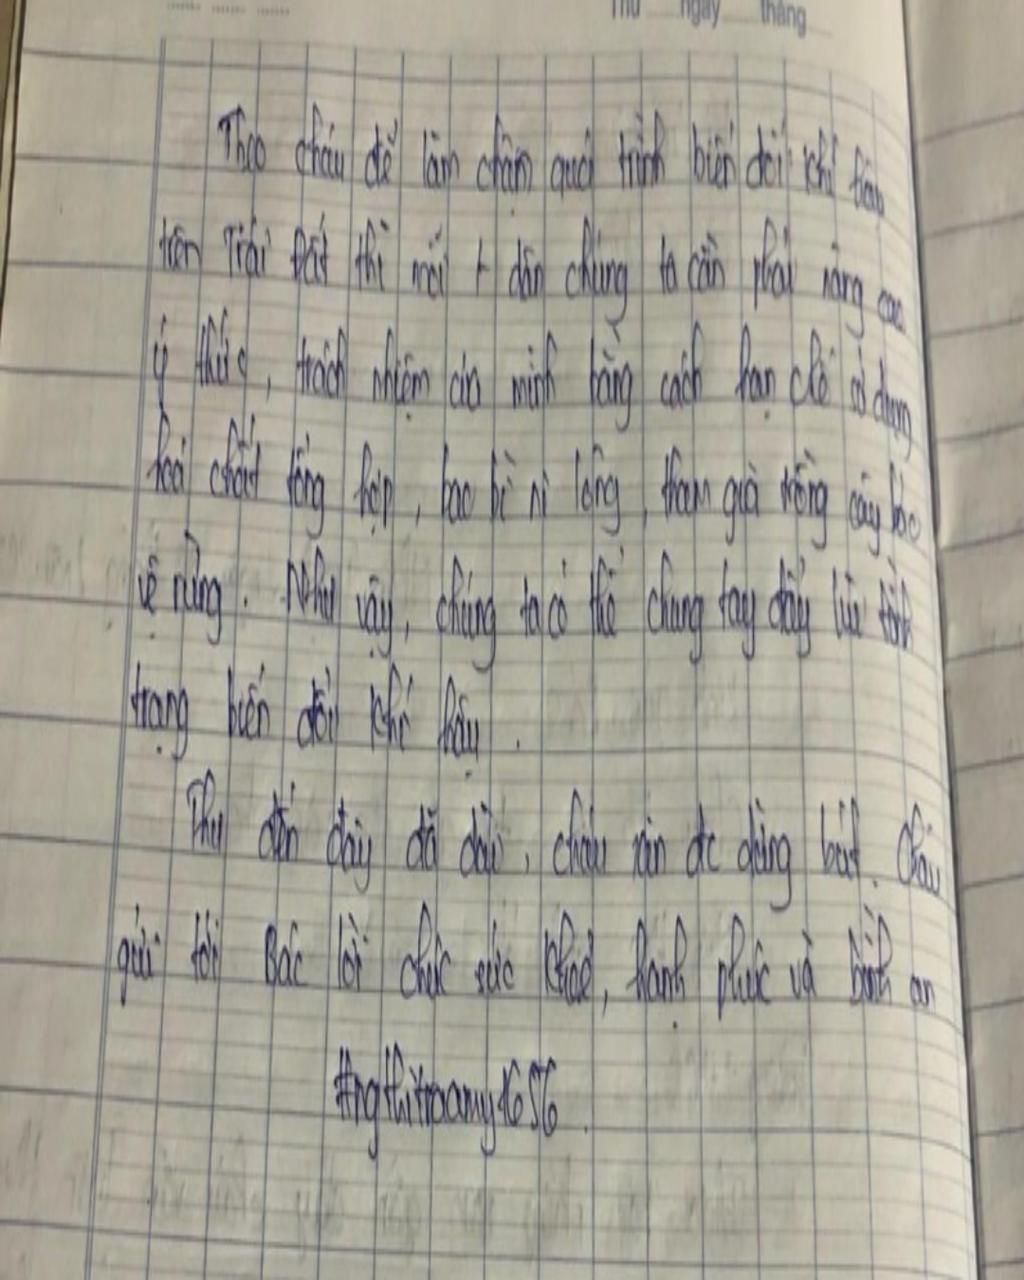 Thứ ngày tháng
Theo cháu để làm chậm quá trình biến đổi khí hậu
trên Trái Đất thì mỗi + dân chúng ta cần phải nâng cao
ý thức, trách nhiệm của mình bằng cách hạn chế sử dụng
hoá chất tổng hợp, bao bì ni lông, tham gia trồng cây bảo
vệ rừng. Như vậy, chúng ta có thể chung tay đẩy lùi tình
trạng biến đổi khí hậu.
Thư đến đây đã dài, cháu xin đc dừng bút. Cháu
gửi tới Bác lời chúc sức khoẻ, hạnh phúc và bình an
#ngthitraamy1656.